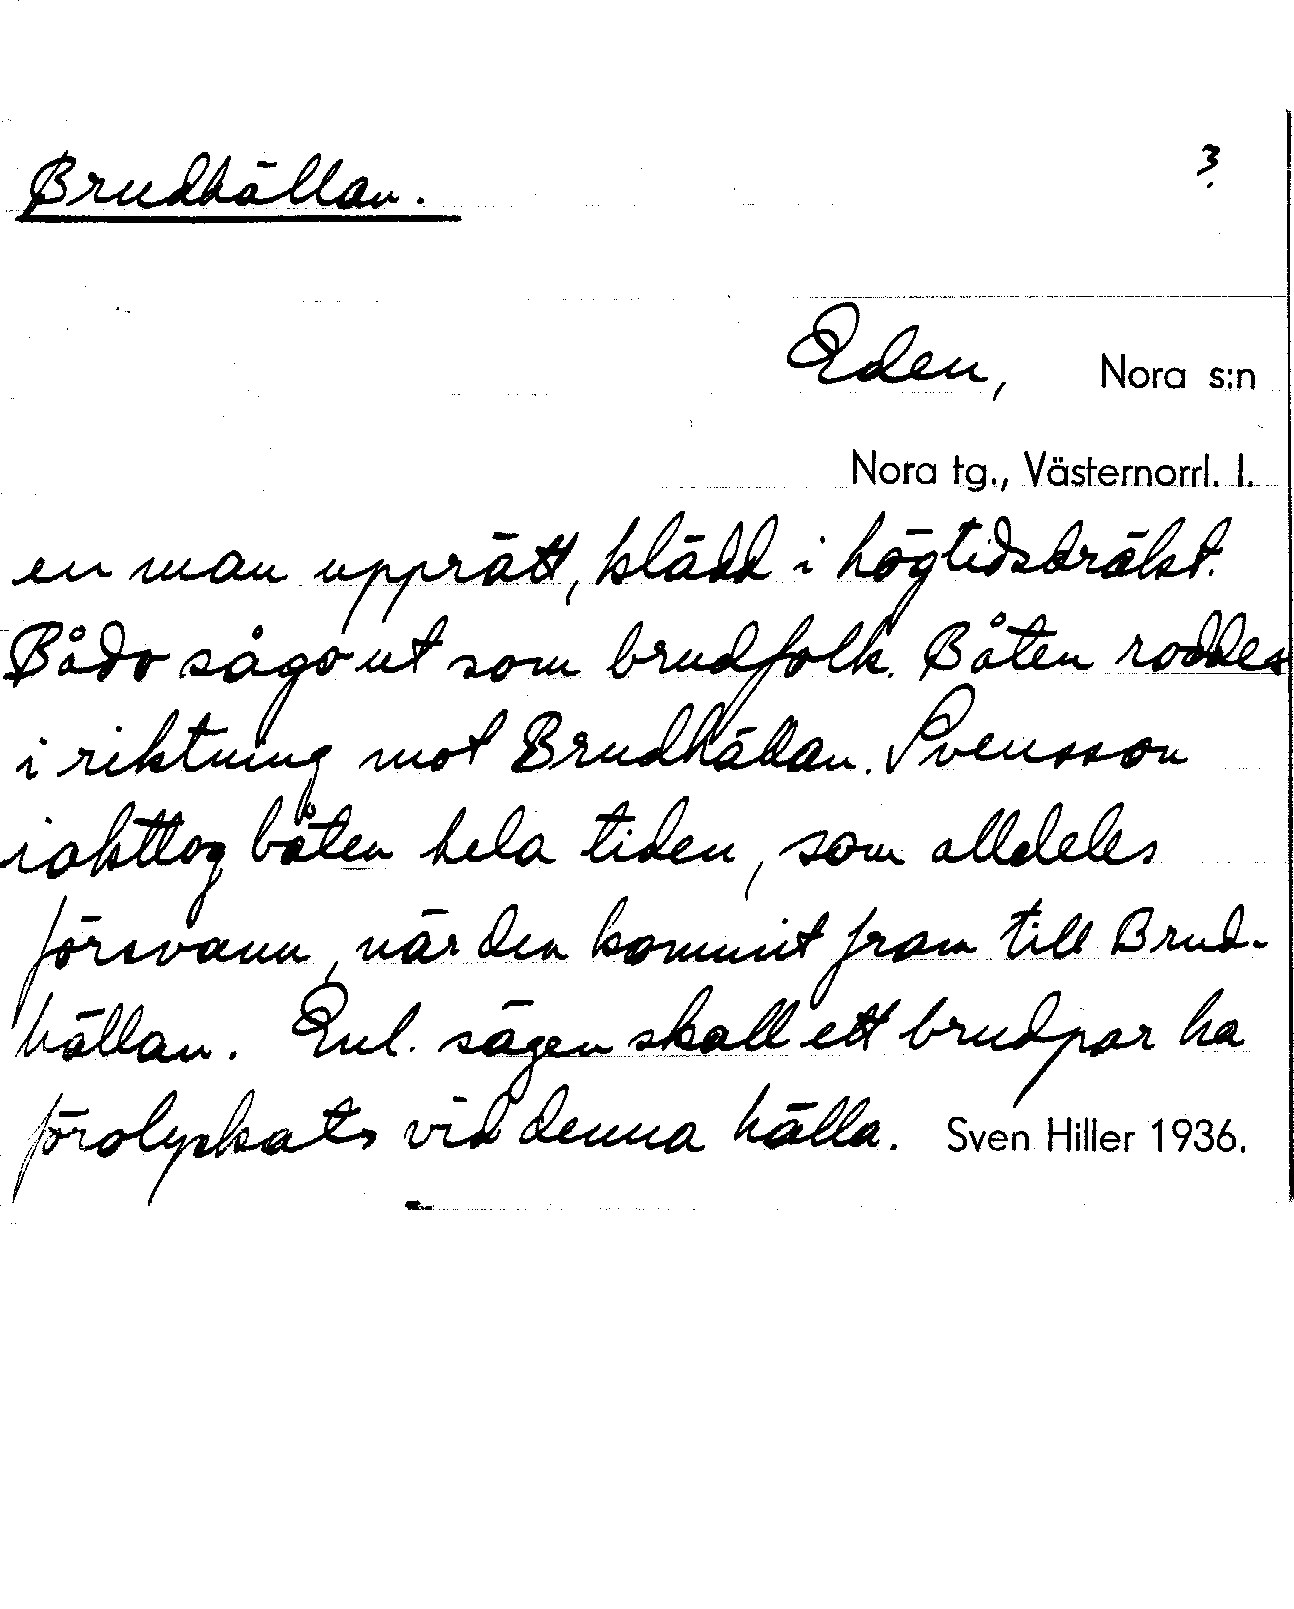 Brudhällan.
3.
Eden, Nora s:n
Nora tg., Västernorrl. l.
en man upprätt, klädd i högtidsdräkt.
Båda sågo ut som brudfolk. Båten roddes
i riktning mot Brudhällan. Svensson
iakttog båten hela tiden, som alldeles
försvann, när den kommit fram till Brud-
hällan. Enl. sägen skall ett brudpar ha
förolyckats vid denna hälla. Sven Hiller 1936.